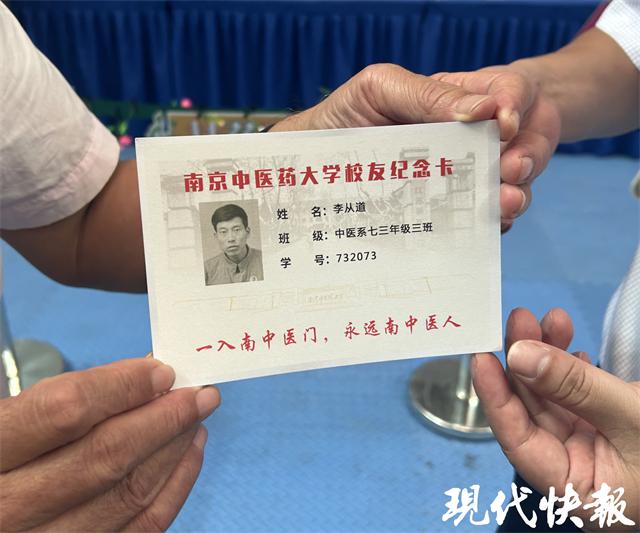 南京中医药大学校友纪念卡
姓 名：李从道
班 级：中医系七三年级三班
学 号：732073
一入南中医门，永远南中医人
现代快報